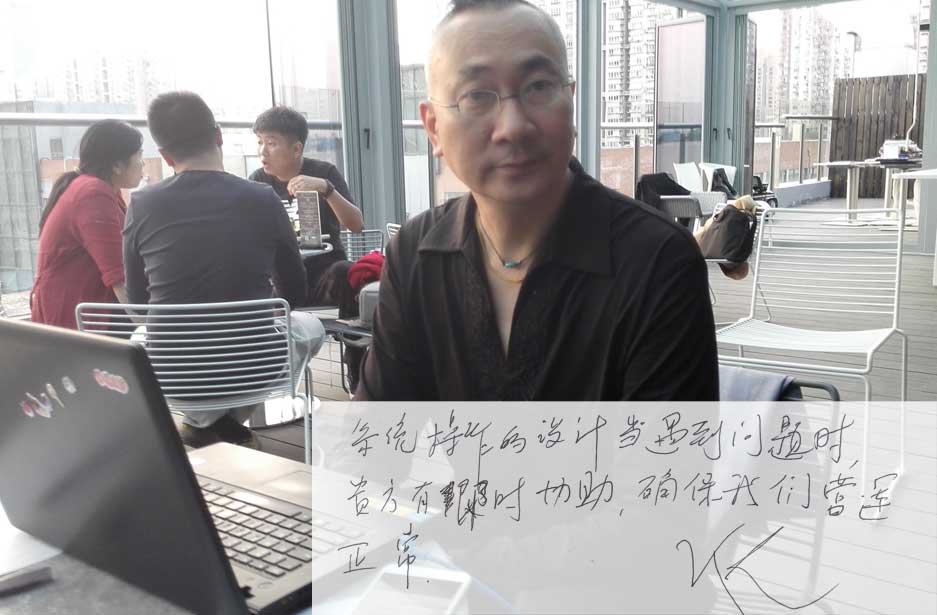 系统操作的设计当遇到问题时,
贵方有时协助,确保我们营运
正常.
VK